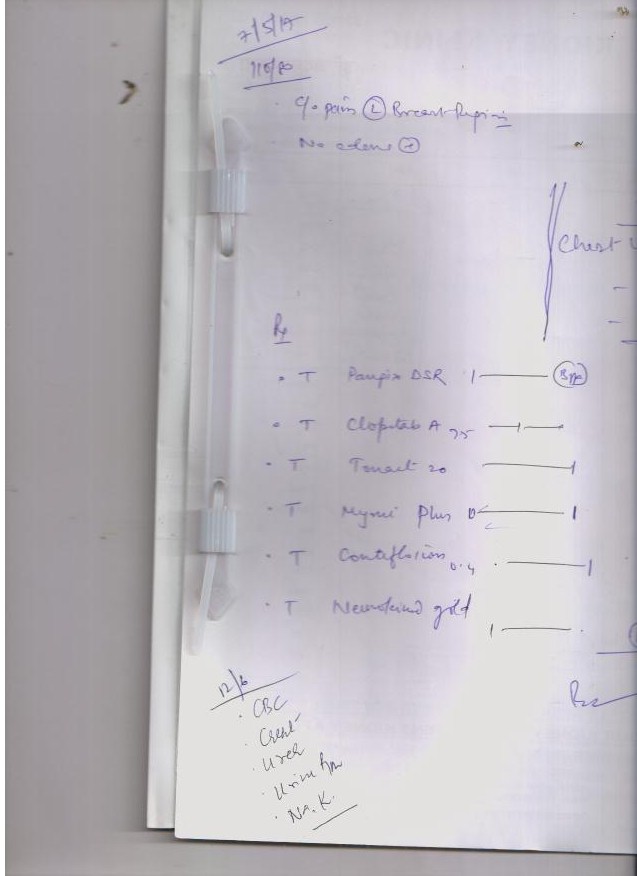 7/5/17
110/80
C/o pain Ⓛ Breast Region
No edema
Chest
Rx
• T Panpix DSR 1 ———
• T Clopitab A 75 —1—
• T Tonact 20 ——— 1
• T Plus ——— 1
• T Contiflo 0.4 ——— 1
• T Neurokind gold 1 ———
12/6
• CBC
• Creat
• Urea
• Urine
• Na. K.